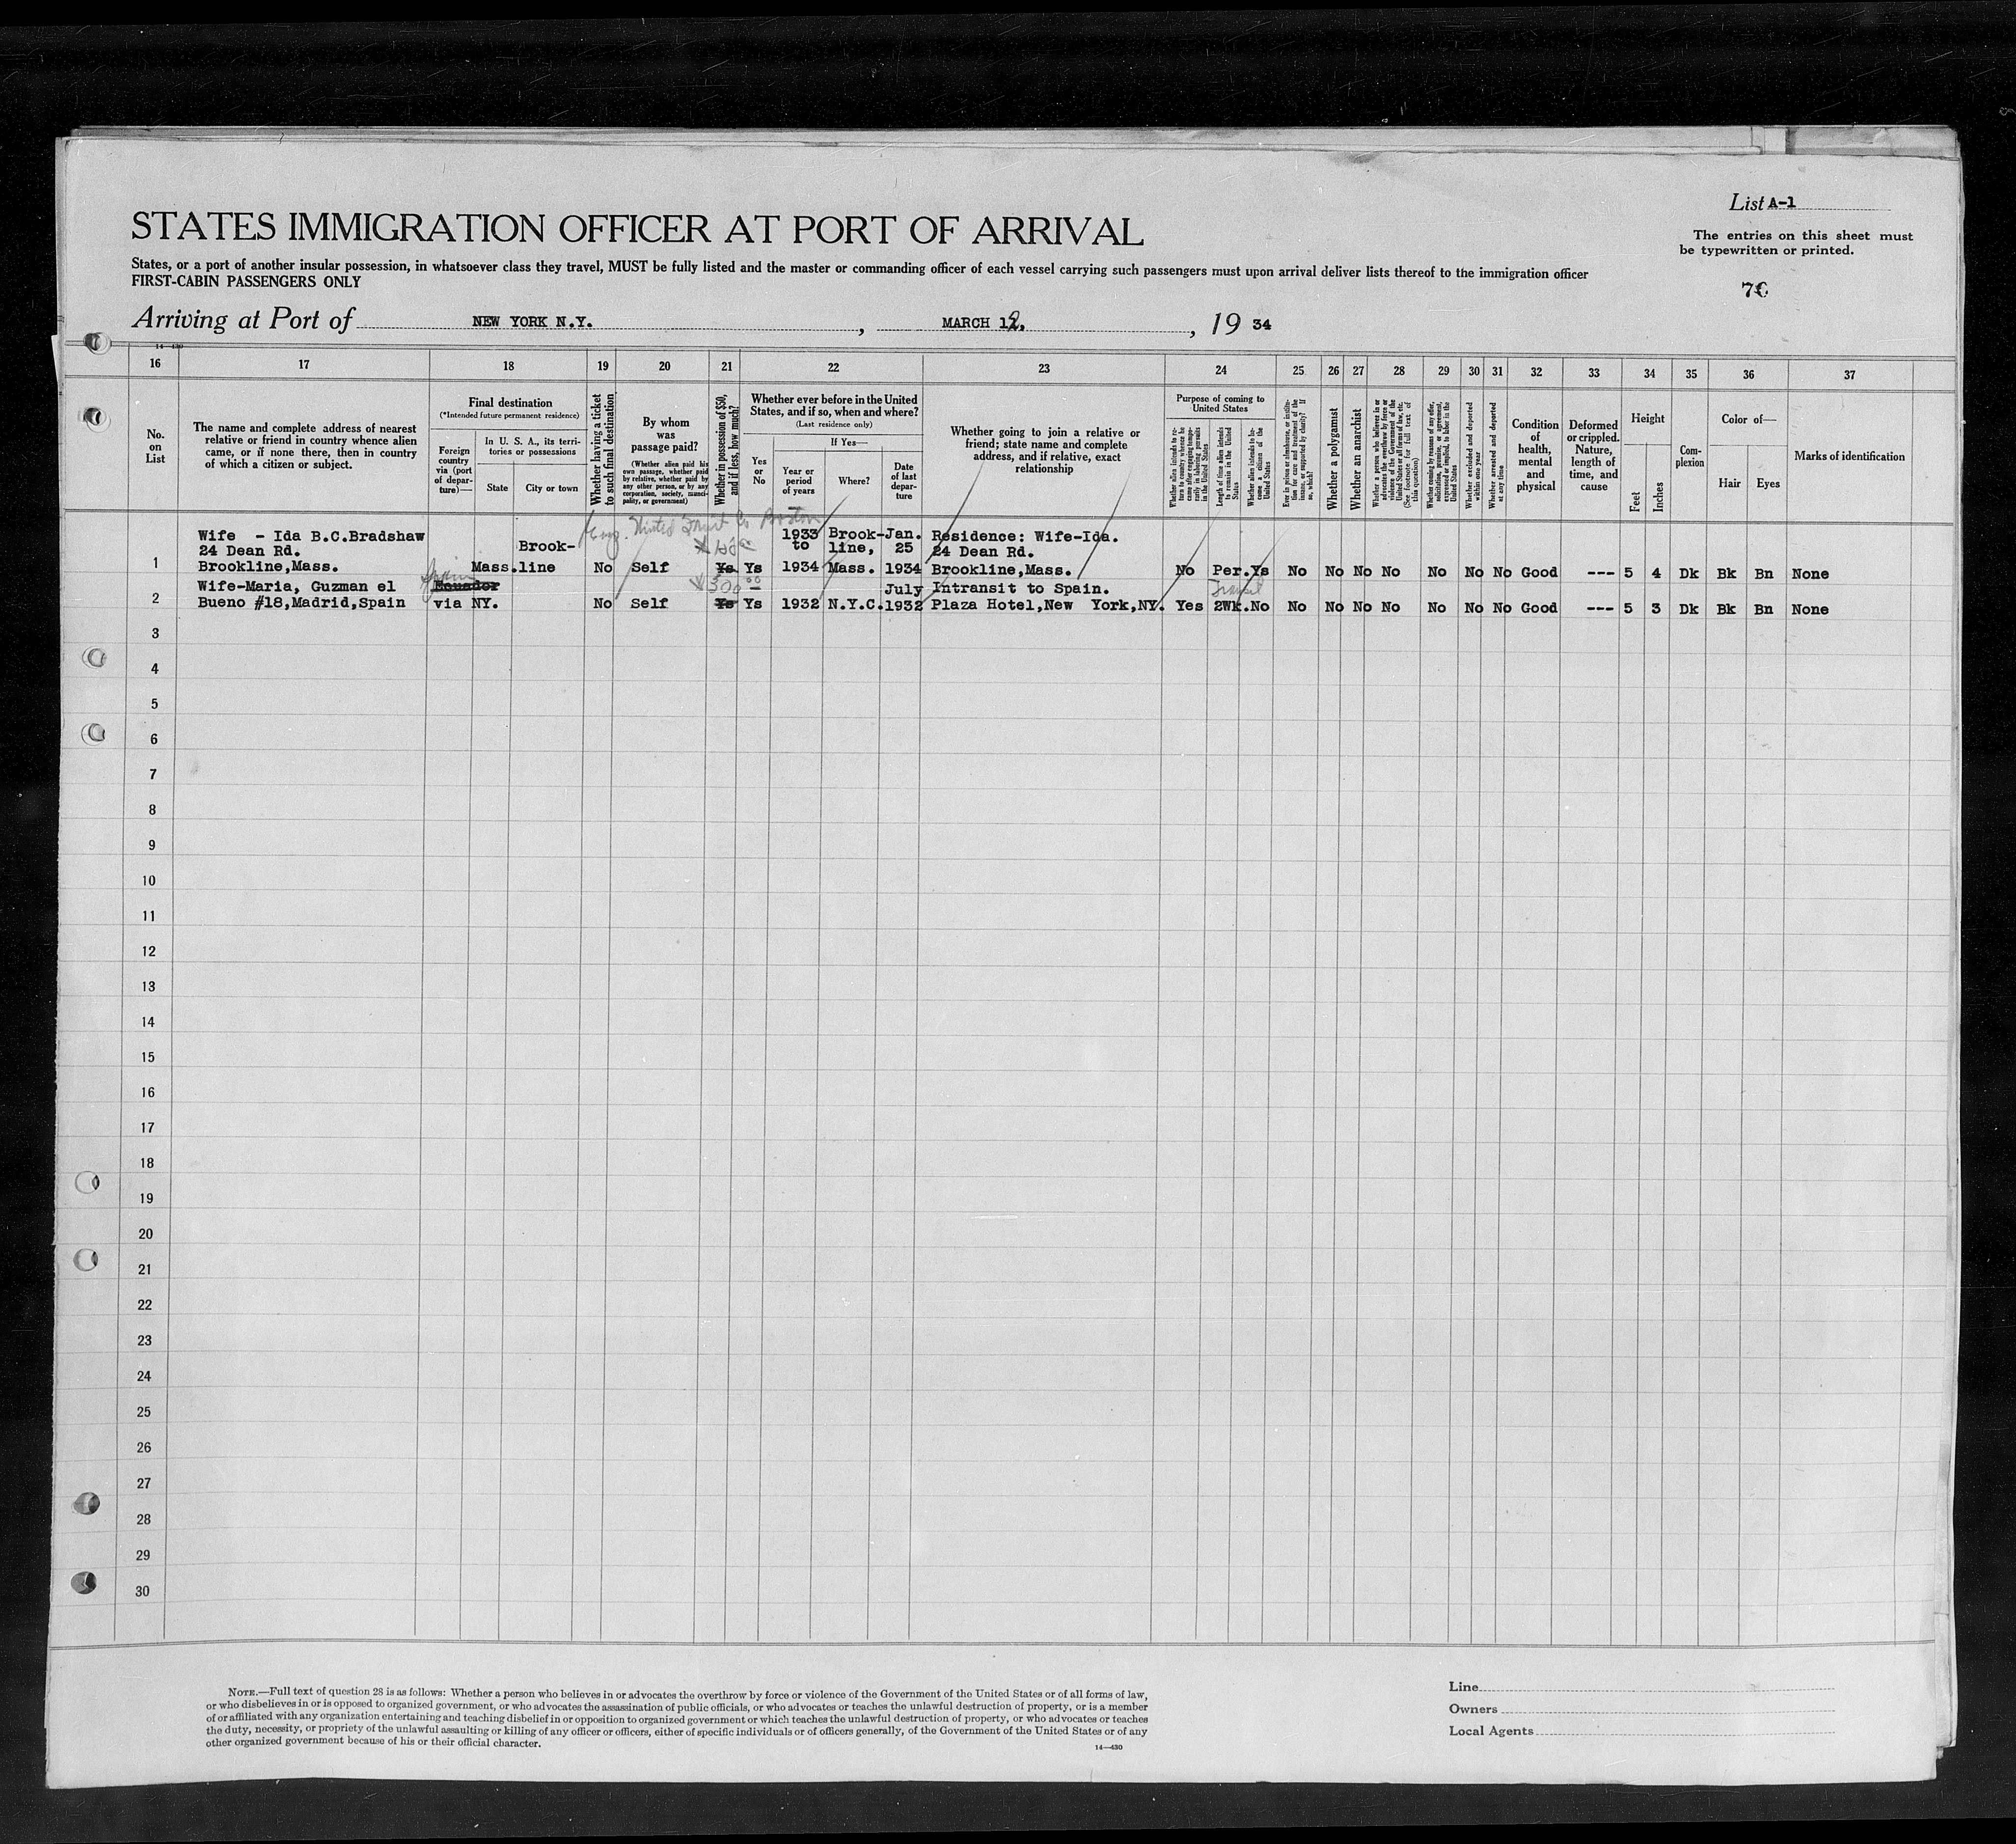 List A-1
STATES IMMIGRATION OFFICER AT PORT OF ARRIVAL
The entries on this sheet must
be typewritten or printed.
States, or a port of another insular possession, in whatsoever class they travel, MUST be fully listed and the master or commanding officer of each vessel carrying such passengers must upon arrival deliver lists thereof to the immigration officer
FIRST-CABIN PASSENGERS ONLY
Arriving at Port of NEW YORK N.Y. , MARCH 12, , 19 34
16 17 18 19 20 21 22 23 24 25 26 27 28 29 30 31 32 33 34 35 36 37
No.
on
List
The name and complete address of nearest
relative or friend in country whence alien
came, or if none there, then in country
of which a citizen or subject.
Final destination
(*Intended future permanent residence)
Foreign
country
via (port
of depar-
ture)—
In U. S. A., its terri-
tories or possessions
State
City or town
Whether having a ticket
to such final destination
By whom
was
passage paid?
(Whether alien paid his
own passage, whether paid
by relative, whether paid by
any other person, or by any
corporation, society, munici-
pality, or government)
Whether in possession of $50,
and if less, how much?
Whether ever before in the United
States, and if so, when and where?
(Last residence only)
Yes
or
No
If Yes—
Year or
period
of years
Where?
Date
of last
depar-
ture
Whether going to join a relative or
friend; state name and complete
address, and if relative, exact
relationship
Purpose of coming to
United States
Whether alien intends to re-
turn to country whence he
came after engaging tempo-
rarily in laboring pursuits
in the United States
Length of time alien intends
to remain in the United
States
Whether alien intends to be-
come a citizen of the
United States
Ever in prison or almshouse, or institu-
tion for care and treatment of the
insane, or supported by charity? If
so, which?
Whether a polygamist
Whether an anarchist
Whether a person who believes in or
advocates the overthrow by force or
violence of the Government of the
United States or all forms of law, etc.
(See footnote for full text of
this question)
Whether coming by reason of any offer,
solicitation, promise, or agreement,
expressed or implied, to labor in the
United States
Whether excluded and deported
within one year
Whether arrested and deported
at any time
Condition
of
health,
mental
and
physical
Deformed
or crippled.
Nature,
length of
time, and
cause
Height
Feet
Inches
Com-
plexion
Color of—
Hair
Eyes
Marks of identification
Eng. United Fruit Co Boston
Wife - Ida B.C.Bradshaw 1933 Brook- Jan. Residence: Wife-Ida.
24 Dean Rd. Brook- to line, 25 24 Dean Rd.
1 Brookline,Mass. Mass. line No Self Ys Ys 1934 Mass. 1934 Brookline,Mass. No Per. Ys No No No No No No No Good --- 5 4 Dk Bk Bn None
Spain $500 00 Transit
Wife-Maria, Guzman el Ecuador July Intransit to Spain.
2 Bueno #18,Madrid,Spain via NY. No Self Ys Ys 1932 N.Y.C. 1932 Plaza Hotel,New York,NY. Yes 2Wk. No No No No No No No No Good --- 5 3 Dk Bk Bn None
3
4
5
6
7
8
9
10
11
12
13
14
15
16
17
18
19
20
21
22
23
24
25
26
27
28
29
30
NOTE.—Full text of question 28 is as follows: Whether a person who believes in or advocates the overthrow by force or violence of the Government of the United States or of all forms of law,
or who disbelieves in or is opposed to organized government, or who advocates the assassination of public officials, or who advocates or teaches the unlawful destruction of property, or is a member
of or affiliated with any organization entertaining and teaching disbelief in or opposition to organized government or which teaches the unlawful destruction of property, or who advocates or teaches
the duty, necessity, or propriety of the unlawful assaulting or killing of any officer or officers, either of specific individuals or of officers generally, of the Government of the United States or of any
other organized government because of his or their official character.
14—430
Line
Owners
Local Agents